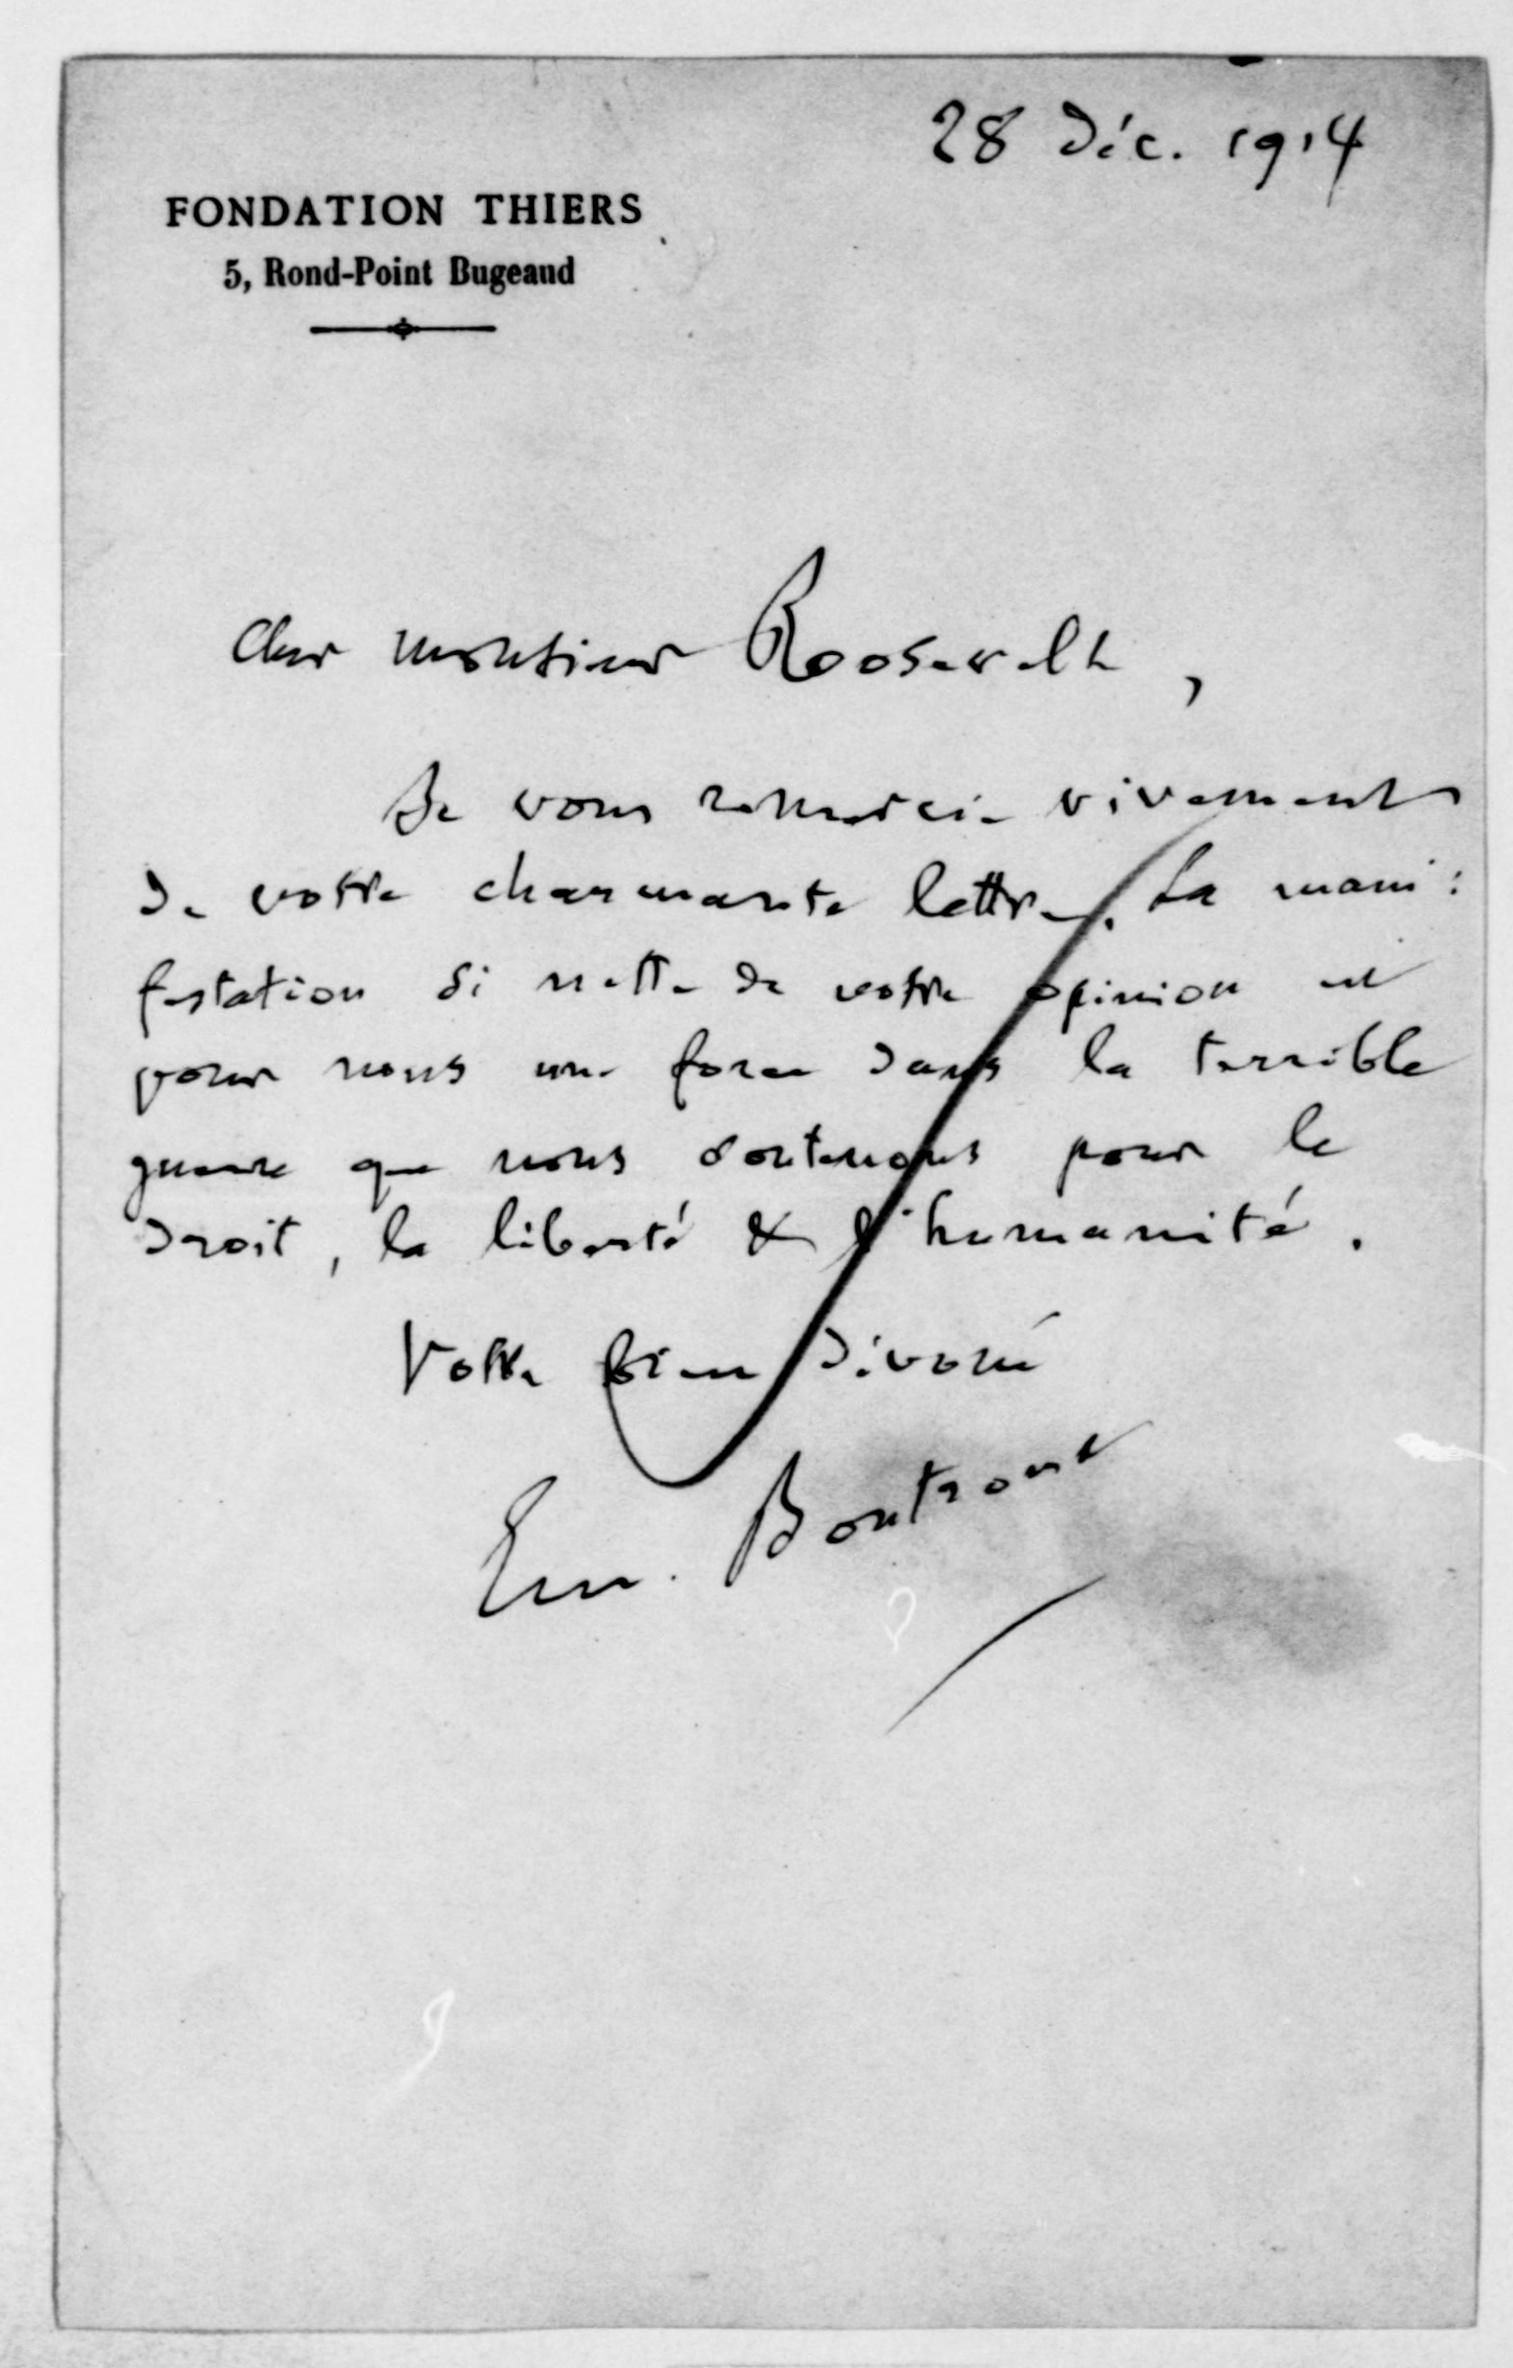 28 Déc. 1914
FONDATION THIERS
5, Rond-Point Bugeaud
Cher Monsieur Roosevelt,
Je vous remercie vivement
de votre charmante lettre. La mani:
festation si nette de votre opinion est
pour nous une force dans la terrible
guerre que nous soutenons pour le
droit, la liberté & l'humanité.
Votre bien dévoué
Em. Boutroux